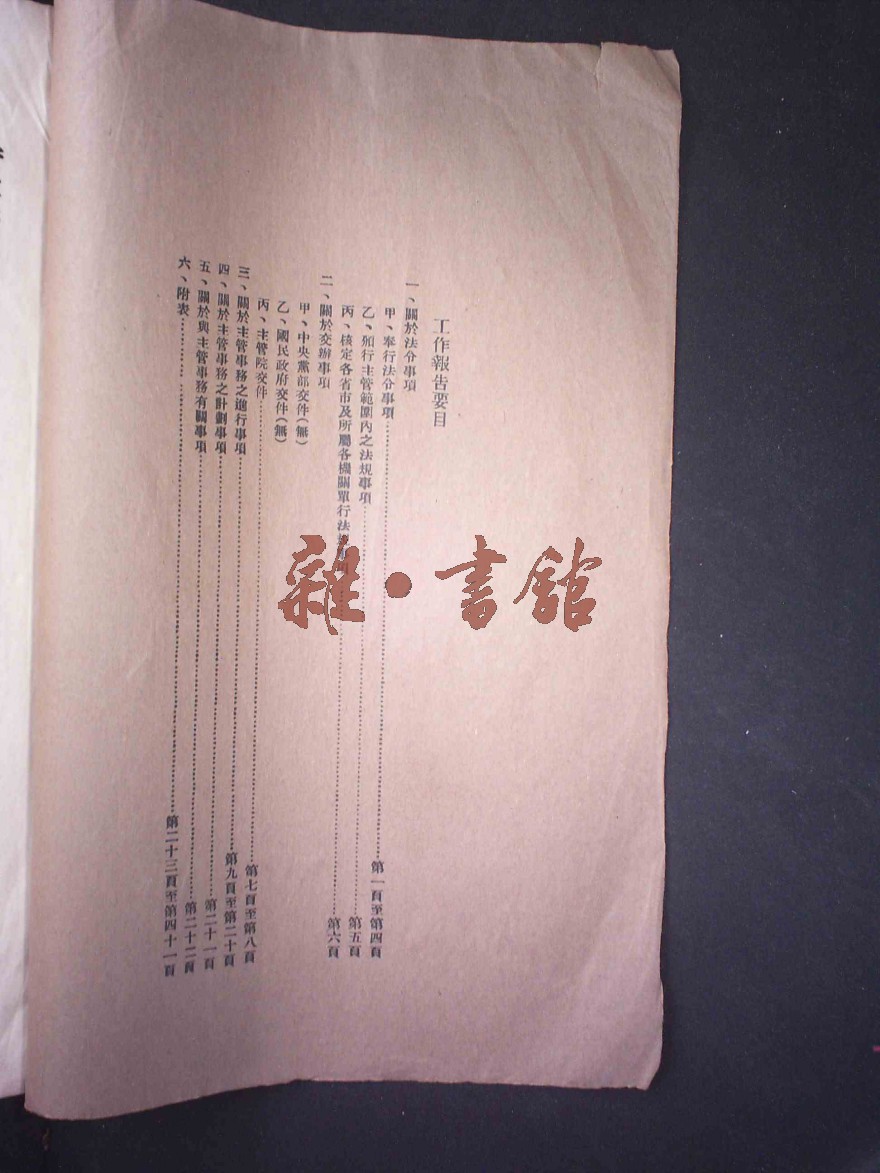 工作報告要目
一、關於法令事項
甲、奉行法令事項⋯⋯第一頁至第四頁
乙、頒行主管範圍內之法規事項⋯⋯第五頁
丙、核定各省市及所屬各機關單行法 項⋯⋯第六頁
二、關於交辦事項
甲、中央黨部交件(無)
乙、國民政府交件(無)
丙、主管院交件⋯⋯第七頁至第八頁
三、關於主管事務之進行事項⋯⋯第九頁至第二十頁
四、關於主管事務之計劃事項⋯⋯第二十一頁
五、關於與主管事務有關事項⋯⋯第二十二頁
六、附表⋯⋯第二十三頁至第四十一頁
雜·書館